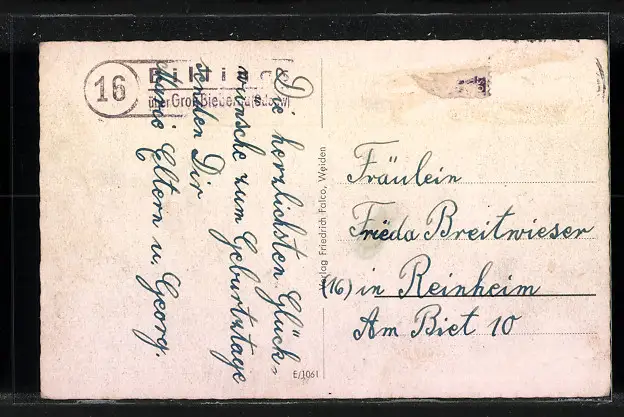 16
über Groß-Bieberau
Die herzlichsten Glück-
wünsche zum Geburtstage
senden Dir
Eltern u. Georg.
Verlag Friedrich Falco, Weiden
E/1061
Fräulein
Frieda Breitwieser
(16) in Reinheim
Am Biet 10